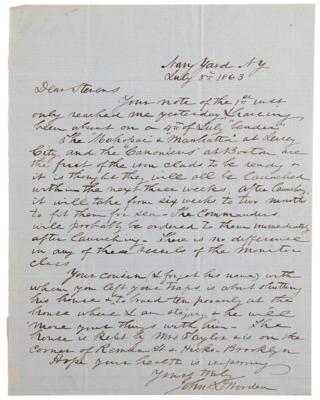 Navy Yard NY
July 8th 1863
Dear Stevens
Your note of the 1st inst
only reached me yesterday, I having
been absent on a "4th of July" bender.
The "Mahopac" & "Manhattan" at Jersey
City, and the "Canonicus" at Boston, are
the first of the iron clads to be ready &
it is thought they will all be launched
within the next three weeks, after launching
it will take from six weeks to two months
to fit them for sea. The Commanders
will probably be ordered to them immediately
after launching. There is no difference
in any of these vessels of the monitor
class.
Your cousin (I forget his name) with
whom you left your traps is about shutting
his house & to board temporarily at the
house where I am staying, & he will
move your things with him. The
house is kept by Mrs Taylor & is on the
corner of Remsen St & Hicks. Brooklyn
Hope your health is improving
Yours truly
John L Worden